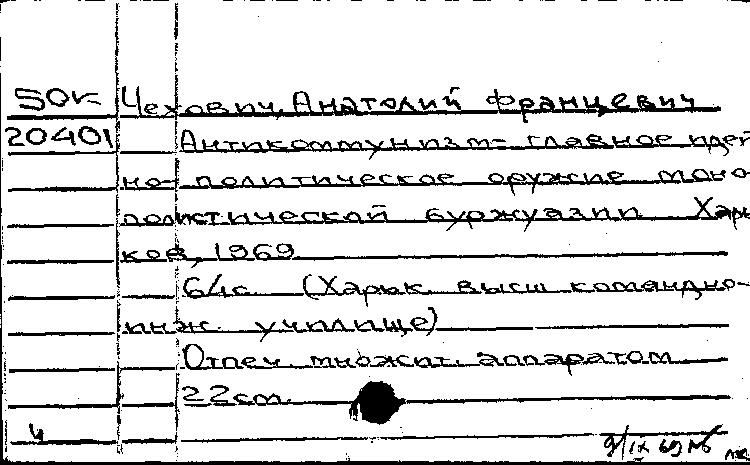 50к Чехович, Анатолий Францевич
20401 Антикоммунизм- главное идей
но- политическое оружие моно
полистической буржуазии Харь
ков, 1969
64с. (Харьк. высш командно-
инж. училище)
Отпеч. множит. аппаратом
22см.
4
9/IX 69